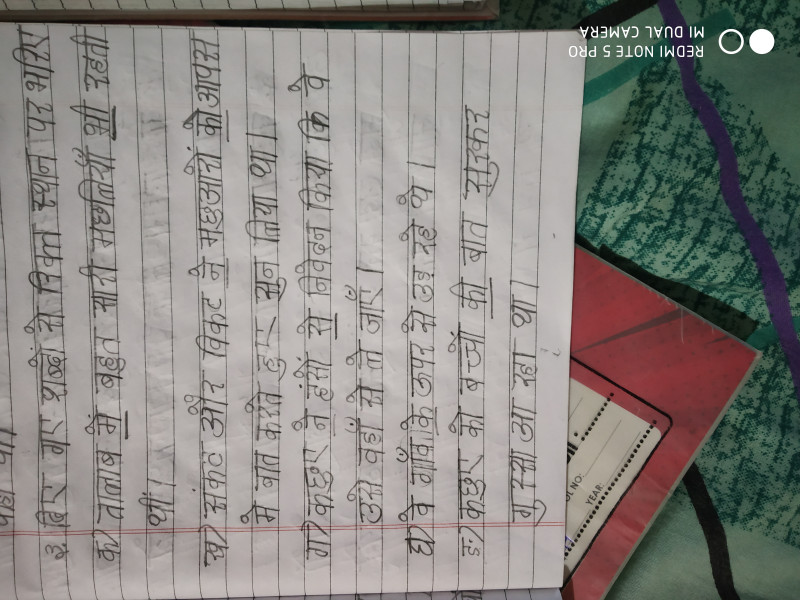 3 दिए गए शब्दों से रिक्त स्थान पर भरिए
क) तालाब में बहुत सारी मछलियाँ भी रहती
थीं।
ख) संकट और विकट ने मछुआरों को आपस
में बात करते हुए सुन लिया था।
ग) कछुए ने हंसों से निवेदन किया कि वे
उसे वहाँ से ले जाएँ।
घ) वे गाँव के ऊपर से उड़ रहे थे।
ङ) कछुए को बच्चों की बात सुनकर
गुस्सा आ रहा था।
REDMI NOTE 5 PRO
MI DUAL CAMERA
NO.
YEAR